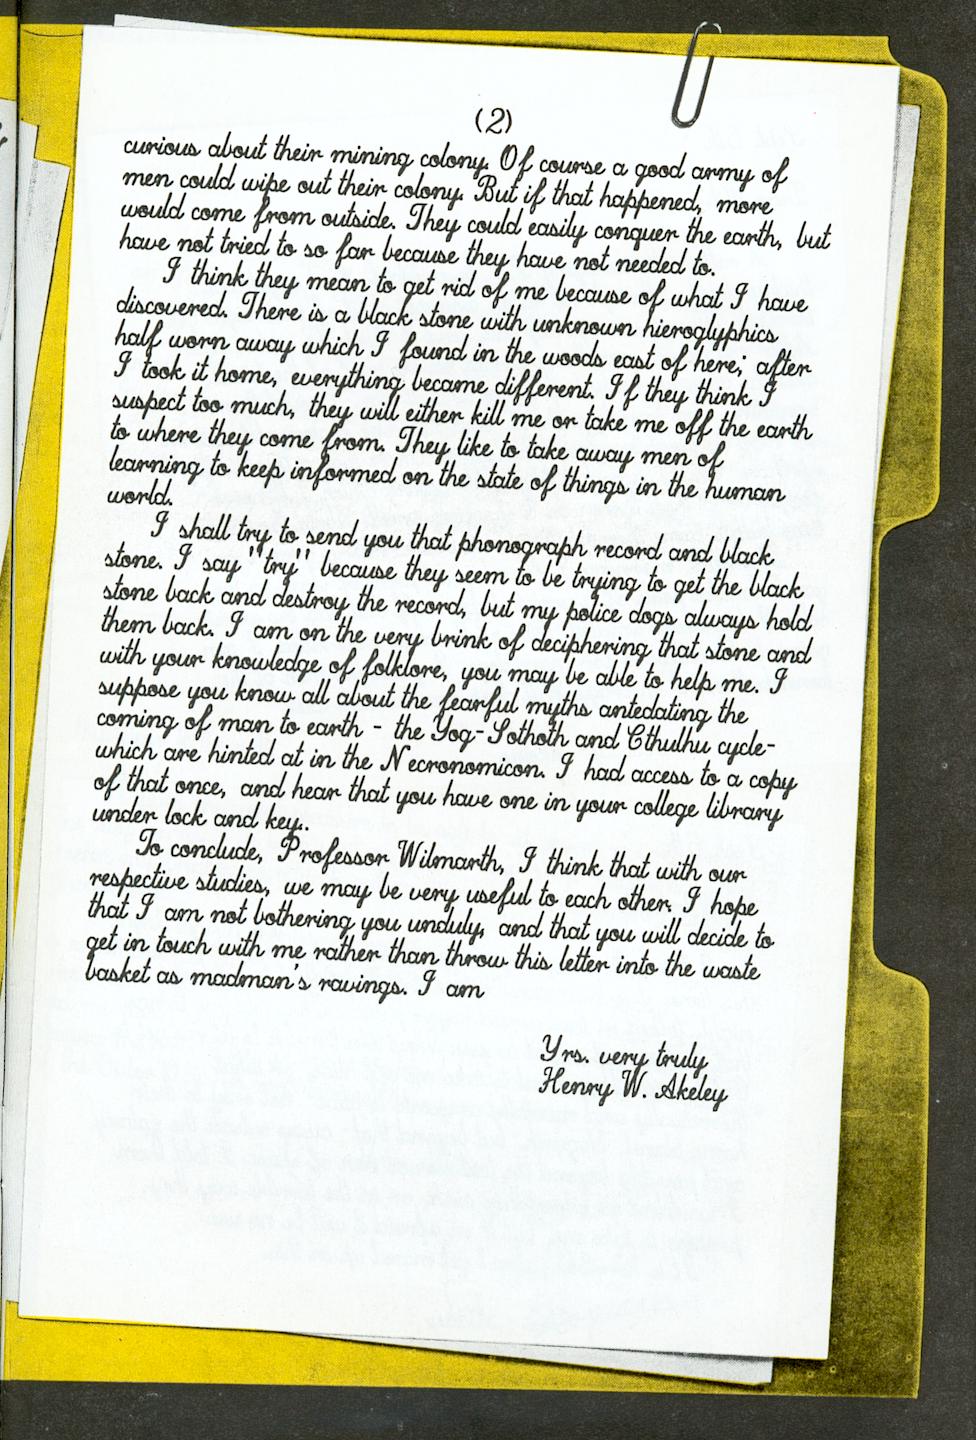 (2)
curious about their mining colony. Of course a good army of
men could wipe out their colony. But if that happened, more
would come from outside. They could easily conquer the earth, but
have not tried to so far because they have not needed to.
I think they mean to get rid of me because of what I have
discovered. There is a black stone with unknown hieroglyphics
half worn away which I found in the woods east of here; after
I took it home, everything became different. If they think I
suspect too much, they will either kill me or take me off the earth
to where they come from. They like to take away men of
learning to keep informed on the state of things in the human
world.
I shall try to send you that phonograph record and black
stone. I say "try" because they seem to be trying to get the black
stone back and destroy the record, but my police dogs always hold
them back. I am on the very brink of deciphering that stone and
with your knowledge of folklore, you may be able to help me. I
suppose you know all about the fearful myths antedating the
coming of man to earth - the Yog-Sothoth and Cthulhu cycle-
which are hinted at in the Necronomicon. I had access to a copy
of that once, and hear that you have one in your college library
under lock and key.
To conclude, Professor Wilmarth, I think that with our
respective studies, we may be very useful to each other. I hope
that I am not bothering you unduly, and that you will decide to
get in touch with me rather than throw this letter into the waste
basket as madman's ravings. I am
Yrs. very truly
Henry W. Akeley